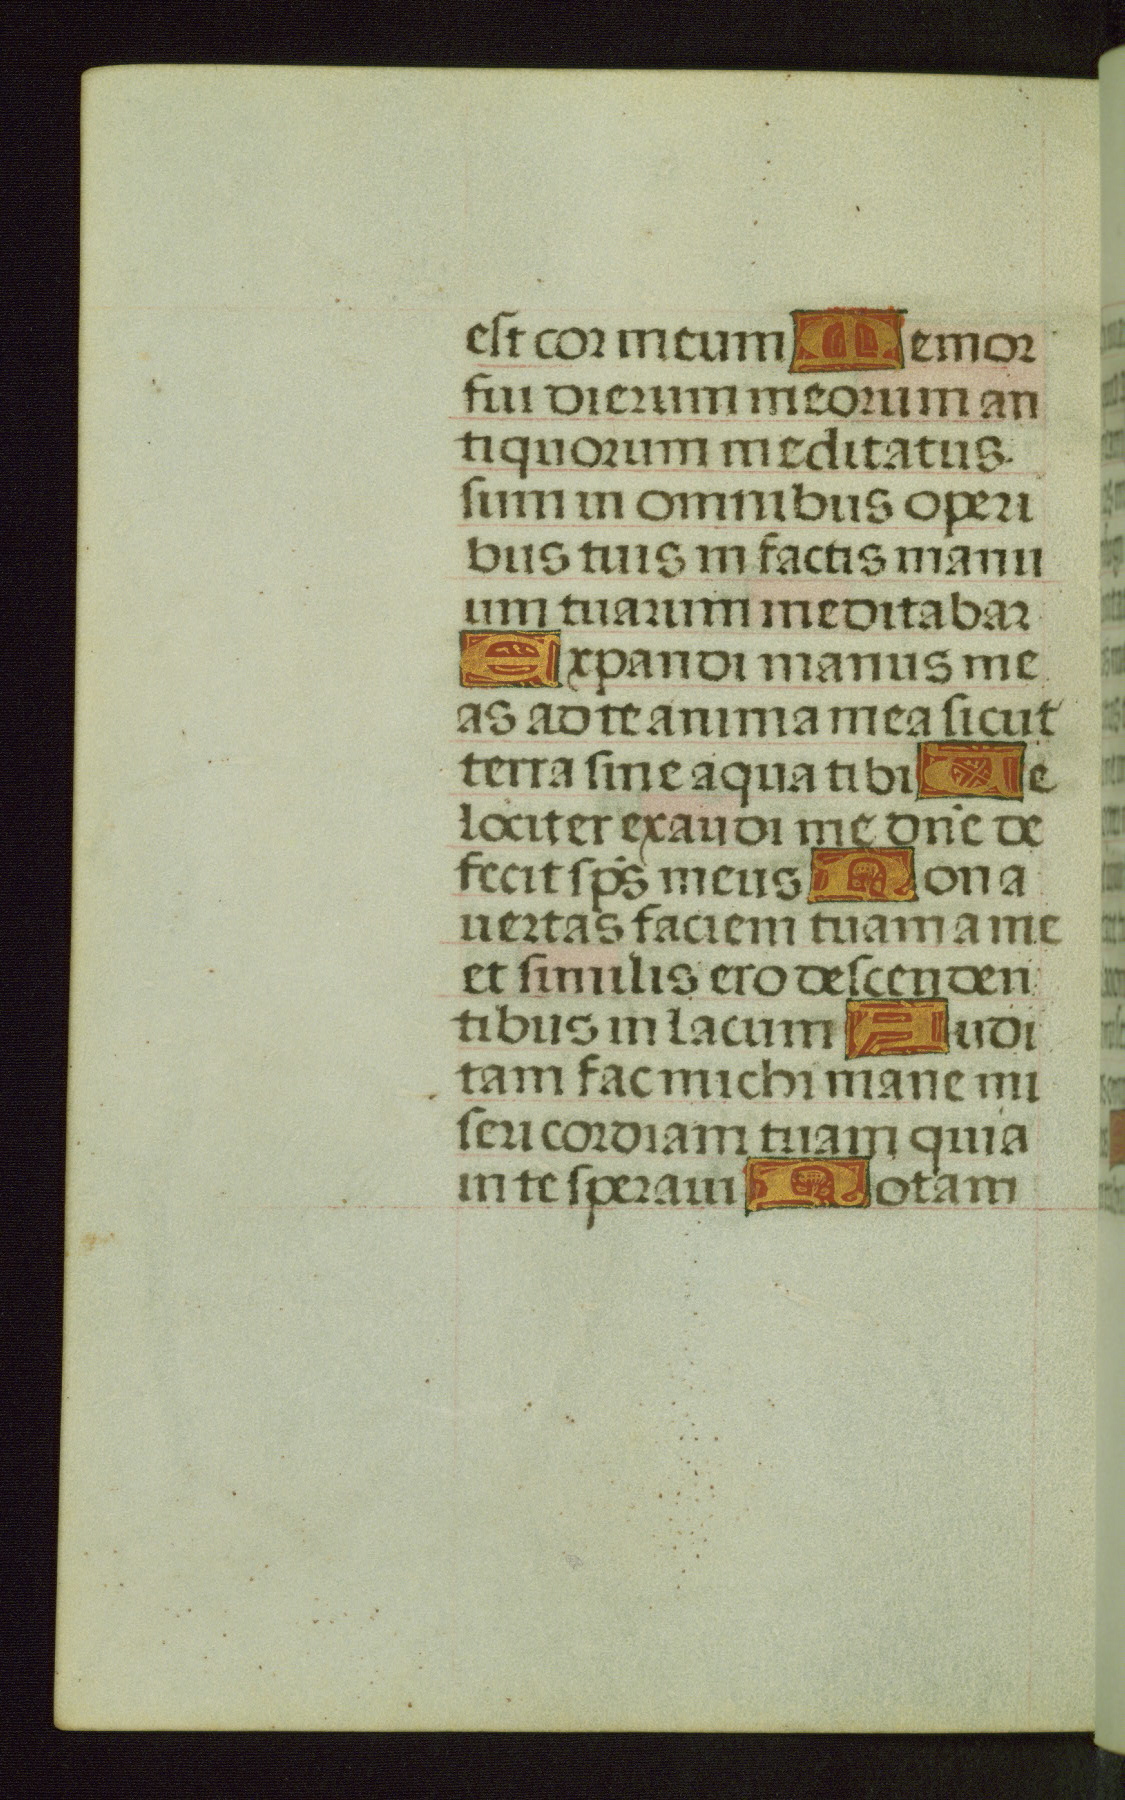 est cor meum Memor
fui dierum meorum an
tiquorum meditatus
sum in omnibus operi
bus tuis in factis manu
um tuarum meditabar
Expandi manus me
as ad te anima mea sicut
terra sine aqua tibi Ve
lociter exaudi me dn̄e de
fecit sp̄s meus Non a
uertas faciem tuam a me
et similis ero descenden
tibus in lacum Audi
tam fac michi mane mi
sericordiam tuam quia
in te speraui Notam